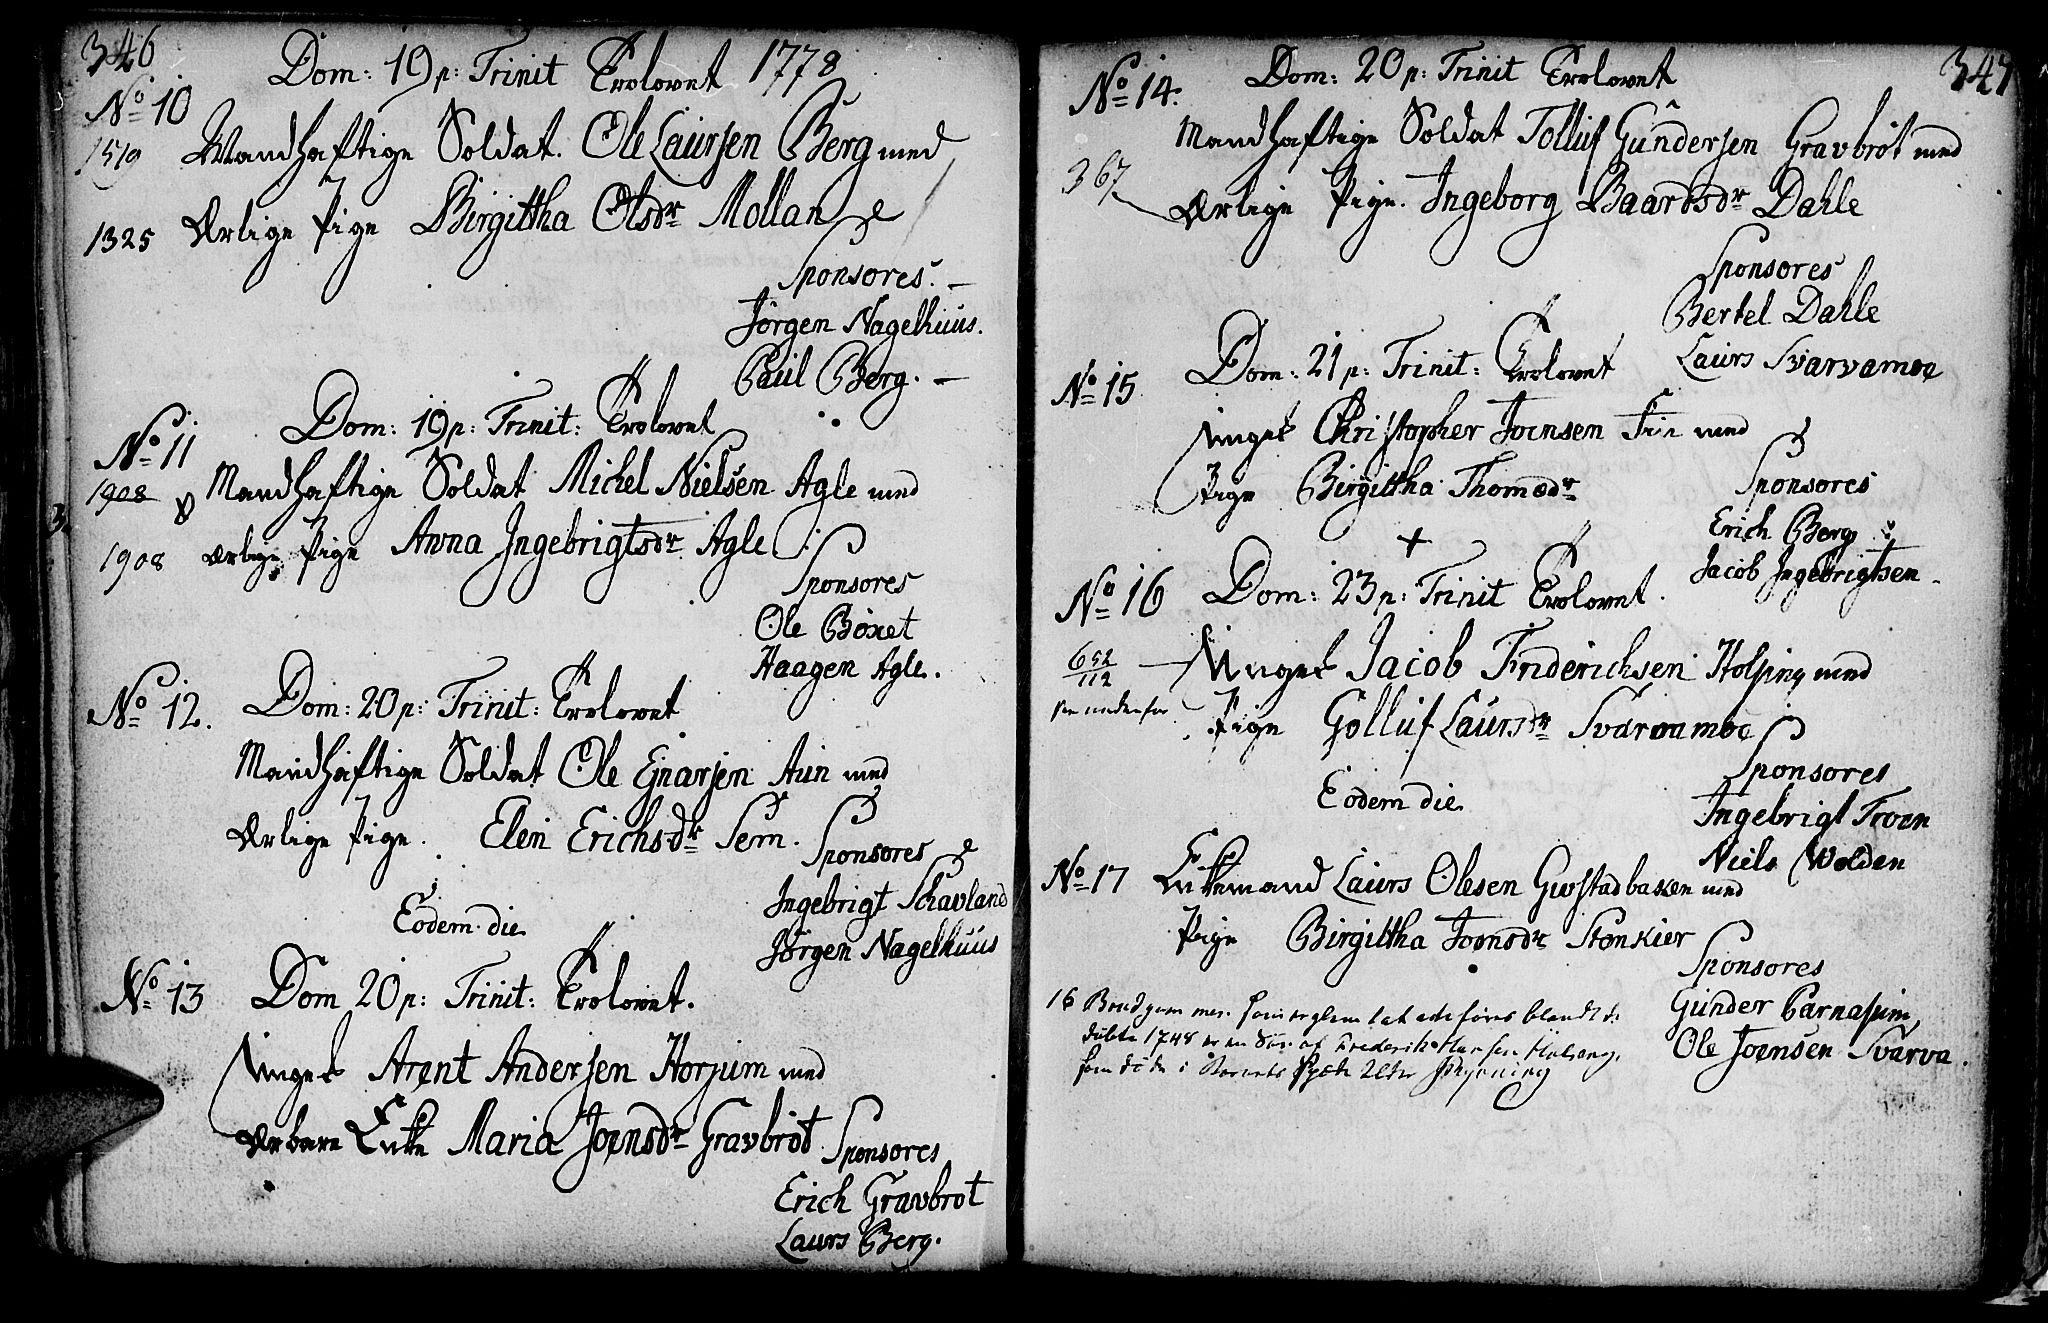 346
Dom: 19 p: Trinit Trolovet 1778
No 10
1519 Mandhaftige Soldat. Ole Laursen Berg med
1325 Ærlige Pige Birgittha Olsdr Mollan
Sponsores.
Jørgen Nagelhuus.
Paul Berg.
No 11 Dom: 19 p: Trinit: Trolovet
1908 Mandhaftige Soldat Michel Nielsen Agle med
1908 Ærlige Pige Anna Ingebrigtsdr Agle
Sponsores
Ole
Haagen Agle.
No 12. Dom: 20 p: Trinit: Trolovet
Mandhaftige Soldat Ole Ejnarsen Aun med
Ærlige Pige. Elen Erichsdr Sem.
Sponsores
Ingebrigt Schavland
Jørgen Nagelhuus
Eodem die
No 13 Dom 20 p: Trinit: Trolovet.
Unget Arent Andersen Horjum med
Ærbare Enke Maria Joensdr Gravbrøt
Sponsores
Erich Gravbrot
Laurs Berg.
347
No 14. Dom: 20 p: Trinit Trolovet
Mandhaftige Soldat Tolluf Gundersen Gravbrøt med
367 Ærlige Pige. Ingeborg Baardsdr Dahle
Sponsores
Bertel Dahle
Laurs Svarvamoe
No 15 Dom: 21 p: Trinit: Trolovet
Unget Christopher Joensen med
Pige Birgittha Thomædr
Sponsores
Erich Berg
Jacob Ingebrigtsen
No 16 Dom: 23 p: Trinit Trolovet.
652
112
se nedenfor
Unget Jacob Friderichsen Holsing med
Pige Golluf Laursdr Svarvamoe
Sponsores
Ingebrigt Troen
Niels Wolden
Eodem die
No 17 Enkemand Laurs Olesen Gvstadbakken med
Pige Birgittha Joensdr Stenkier
Sponsores
Gunder
Ole Joensen Svarva.
16 Brudgommen som er glemt at
døbte 1748 er en Søn af Frederik Hansen
som døde i